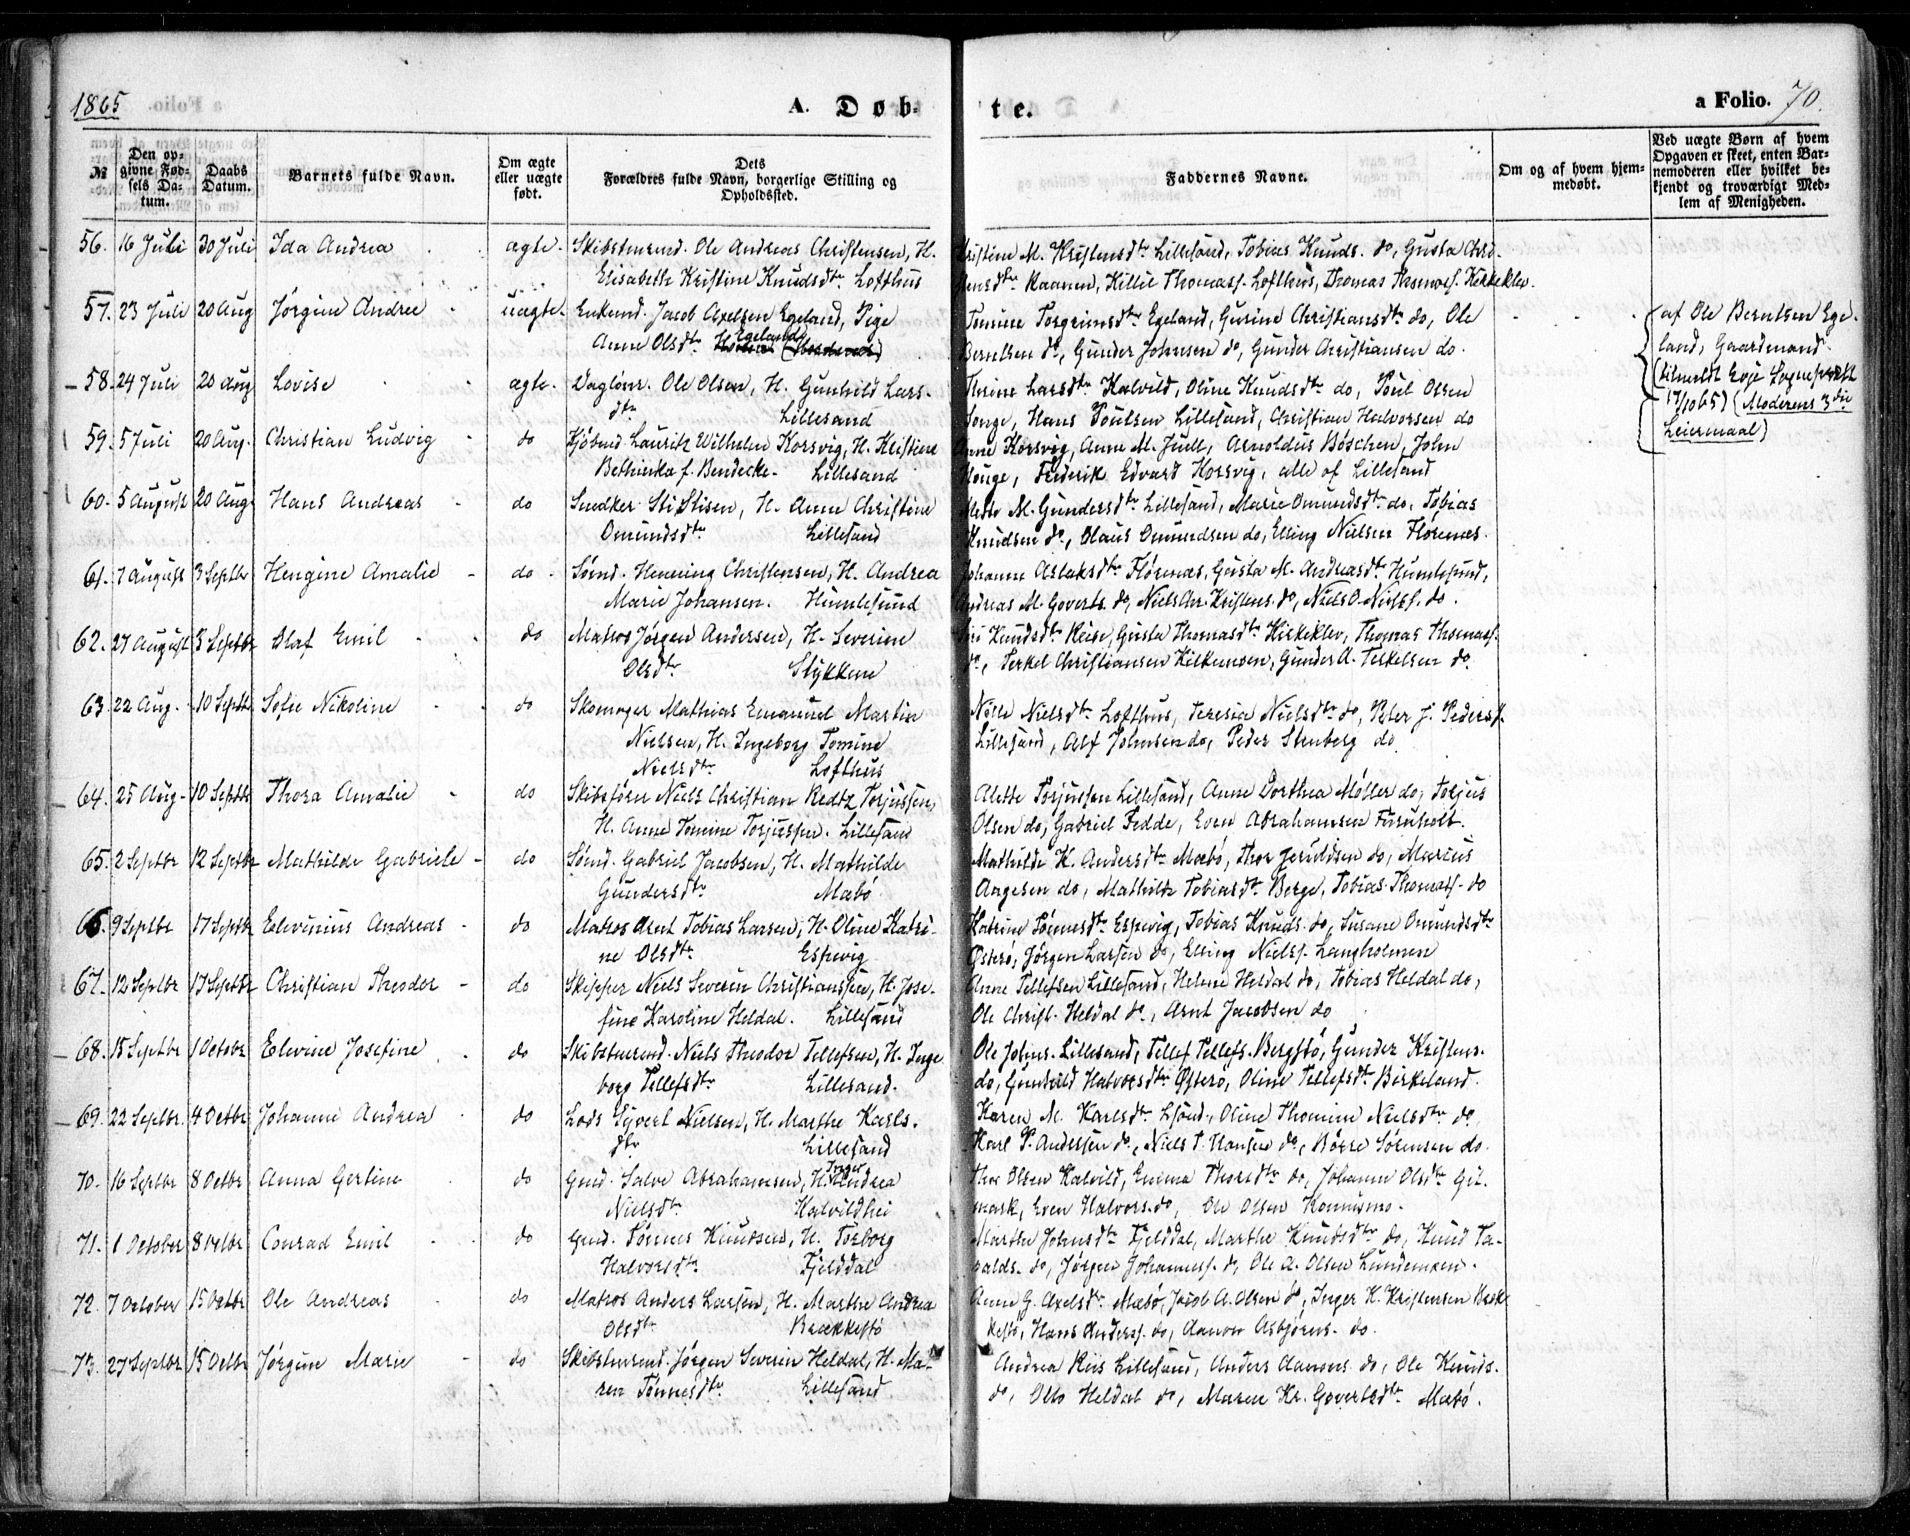 1865
A. Døb-
te.
a Folio. 70.
№
Den op-
givne Fød-
sels Da-
tum.
Daabs
Datum.
Barnets fulde Navn.
Om ægte
eller uægte
født.
Dets
Forældres fulde Navn, borgerlige Stilling og
Opholdssted.
Faddernes Navne.
Om og af hvem hjem-
medøbt.
Ved uægte Børn af hvem
Opgaven er skeet, enten Bar-
nemoderen eller hvilket be-
kjendt og troværdigt Med-
lem af Menigheden.
56. 16 Juli 30 Juli Ida Andrea ægte. Skibstmrmd. Ole Andreas Christensen, H.
Elisabeth Kristine Knudsdtr Lofthus
Kristine M. Kristensdtr Lillesand, Tobias Knuds. do, Gusta Chri-
stensdtr Kaanen, Killie Thomass. Lofthus, Thomas Thomass. Kirkeklev.
57. 23 Juli 20 Aug Jørgine Andree uægte. Enkemd. Jacob Axelsen Egeland, Pige
Anne Olsdtr Egeland
Tomine Torgrimsdtr Egeland, Gurine Christiansdtr do, Ole
Berntsen do, Gunder Johnsen do, Gunder Christiansen do.
af Ole Berntsen Ege-
land, Gaardmand.
(tilmeldt Evje Sognepræst
17/10 65) (Moderens 3die
Leiermaal)
58. 24 Juli 20 Aug Lovise ægte. Daglønr. Ole Olsen, H. Gunhild Lars-
dtr Lillesand
Thrine Larsdtr Kalvild, Oline Knudsdtr do, Poul Olsen
Songe, Hans Poulsen Lillesand, Christian Halvorsen do
59. 5 Juli 20 Aug. Christian Ludvig do Kjøbmd Lauritz Wilhelm Korsvig, H. Kristine
Bethinka f. Bendecke. Lillesand
Anne Korsvig, Anne M. Juell, Arnoldus Böschen, John
Houge, Frederik Edvard Korsvig, alle af Lillesand
60. 5 August 20 Aug Hans Andreas do Snedker Sti Stisen, H. Anne Christine
Omundsdtr Lillesand
Mette M. Gundersdtr Lillesand, Marie Omundsdtr do, Tobias
Knudsen do, Olaus Omundsen do, Elling Nielsen Florenæs.
61. 7 August 3 Septbr Hengine Amalie do. Sømd. Henning Christensen, H. Andrea
Marie Johansen. Humlesund
Johanne Aslaksdtr Florenæs, Gusta M. Andreasdtr Humlesund,
Andreas M. Goverts. do, Niels Chr. Kristens. do, Niels O. Nielss. do.
62. 27 August 3 Septbr Olaf Emil do Matros Jørgen Andersen, H. Severine
Olsdtr Stykkene
Siri Knudsdtr Reise, Gusta Thomasdtr Kirkeklev, Thomas Thomass.
do, Terkel Christiansen Kilkemoen, Gunder A. Terkelsen do.
63. 22 Aug. 10 Septbr Sofie Nikoline do Skomager Mathias Emanuel Martin
Nielsen, H. Ingeborg Tomine
Nielsdtr Lofthus
Nille Nielsdtr Lofthus, Teresia Nielsdtr do, Peter J. Pederss.
Lillesand, Alf Johnsen do, Peder Stenberg do
64. 25 Aug. 10 Septbr Thora Amalie do Skibsfører Niels Christian Redtz Torjussen,
H. Anne Tomine Torjussen. Lillesand
Alette Torjussen Lillesand, Anne Dorthea Møller do, Torjus
Olsen do, Gabriel Fedde, Even Abrahamsen Furuholt.
65. 2 Septbr 12 Septbr Mathilde Gabriele do Sømd. Gabriel Jacobsen, H. Mathilde
Gundersdtr Mæbø
Mathilde K. Andersdtr Mæbø, Thor Jeruldsen do, Marius
Aagesen do, Mathilde Tobiasdtr Berge, Tobias Thomass. do
66. 9 Septbr 17 Septbr Elevinius Andreas do Matros Arnt Tobias Larsen, H. Oline Katri-
ne Olsdtr Espevig
Katrine Tønnesdtr Espevig, Tobias Knuds. do, Susane Omundsdtr
Østerø, Jørgen Larsen do, Elling Nielss. Langholmen
67. 12 Septbr 17 Septbr Christian Theodor do Skipper Niels Severin Christianssen, H. Jose-
fine Karoline Heldal. Lillesand
Anne Tellefsen Lillesand, Helene Heldal do, Tobias Heldal do,
Ole Christ. Heldal do, Arnt Jacobsen do
68. 15 Septbr 1 Octobr Elevine Josefine do Skibstmrmd. Niels Theodor Tellefsen, H. Inge
borg Tellefsdtr Lillesand.
Ole Johns. Lillesand, Tellef Tellefs. Bergstø, Gunder Kristens.
do, Gunhild Halvorsdtr Østerø, Oline Tellefsdtr Birkeland.
69. 22 Septbr. 4 Octbr Johanne Andrea do Lods Syvert Nielsen, H. Marthe Karls-
dtr Lillesand
Karen M. Karlsdtr Lsand, Oline Thomine Nielsdtr do
Karl P. Andersen do, Niels T. Hansen do, Börre Sörensen do.
70. 16 Septbr 8 Octbr Anna Gertine do Gmd. Salve Abrahamsen, H. Inger Andrea
Nielsdtr Kalvildhei
Thor Olsen Kalvild, Emma Thorsdtr do, Johanne Olsdtr Git-
mark, Even Halvors. do, Ole Olsen
71. 1 October 8 Octbr Conrad Emil do Gmd. Tønnes Knudsen, H. Torborg
Halvorsdtr Fjelddal
Marthe Johnsdtr Fjelddal, Marthe Knudsdtr do, Knud Ta-
ralds. do, Jørgen Johanness. do, Ole A. Olsen Lundemoen.
72. 7 October 15 Octbr Ole Andreas do Matros Anders Larsen, H. Marthe Andrea
Olsdtr Brækkestø
Anne G. Axelsdtr Mæbø, Jacob A. Olsen do, Inger K. Kristensen Bræk
kestø, Hans Anderss. do, Aanon Asbjørns. do.
73. 27 Septbr 15 Octbr Jørgine Marie do Skibstmrmd. Jørgen Severin Heldal, H. Ma-
ren Tønnesdtr Lillesand
Andrea Riis Lillesand, Anders Aanons. do, Ole Knuds.
do, Otto Heldal do, Maren Kr. Govertsdtr Mæbø.